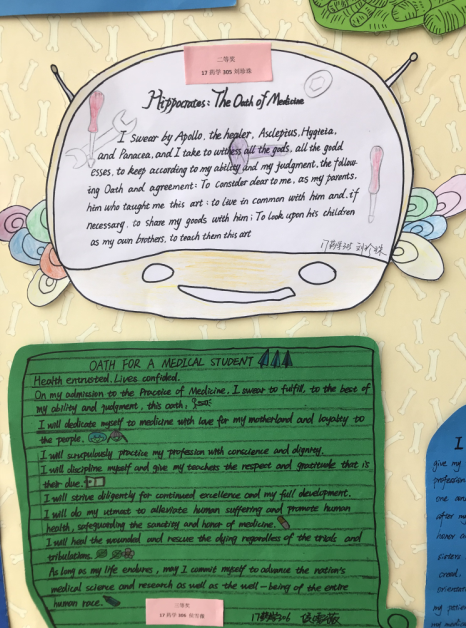 二等奖
17药学305 刘珍珠
Hippocrates: The Oath of Medicine
I swear by Apollo, the healer, Asclepius, Hygieia,
and Panacea, and I take to witness all the gods, all the godd
esses, to keep according to my ability and my judgment, the follow-
ing Oath and agreement: To consider dear to me, as my parents,
him who taught me this art; to live in common with him and, if
necessary, to share my goods with him; To look upon his children
as my own brothers, to teach them this art
17药学305 刘珍珠
OATH FOR A MEDICAL STUDENT
Health entrusted. Lives confided.
On my admission to the Practice of Medicine, I swear to fulfill, to the best of
my ability and judgment, this oath:
I will dedicate myself to medicine with love for my motherland and loyalty to
the people.
I will scrupulously practice my profession with conscience and dignity.
I will discipline myself and give my teachers the respect and gratitude that is
their due.
I will strive diligently for continued excellence and my full development.
I will do my utmost to alleviate human suffering and promote human
health, safeguarding the sanctity and honor of medicine.
I will heal the wounded and rescue the dying regardless of the trials and
tribulations.
As long as my life endures, may I commit myself to advance the nation's
medical science and research as well as the well-being of the entire
human race.
二等奖
17药学306
17药学306
I
give my
profession
one and
after my
honor a
sisters
creed,
orient
my patie